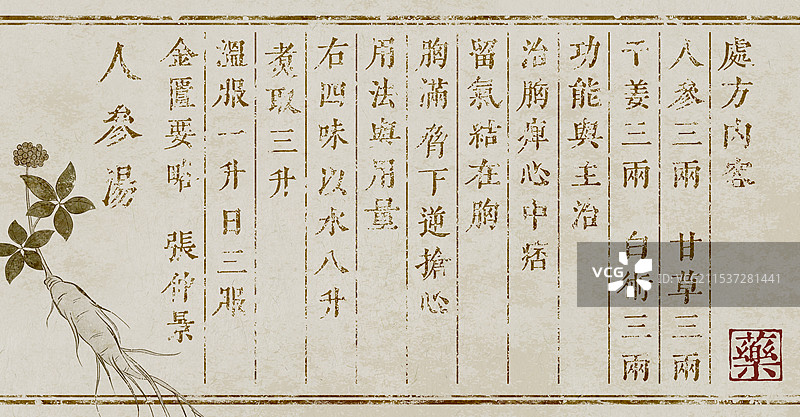 處方内容
人參三兩 甘草三兩
干姜三兩 白術三兩
功能與主治
治胸痺心中痞
留氣結在胸
胸滿脅下逆搶心
用法與用量
右四味以水八升
煮取三升
溫服一升日三服
金匱要略 張仲景
人參湯
藥
VCG
VCG211537281441